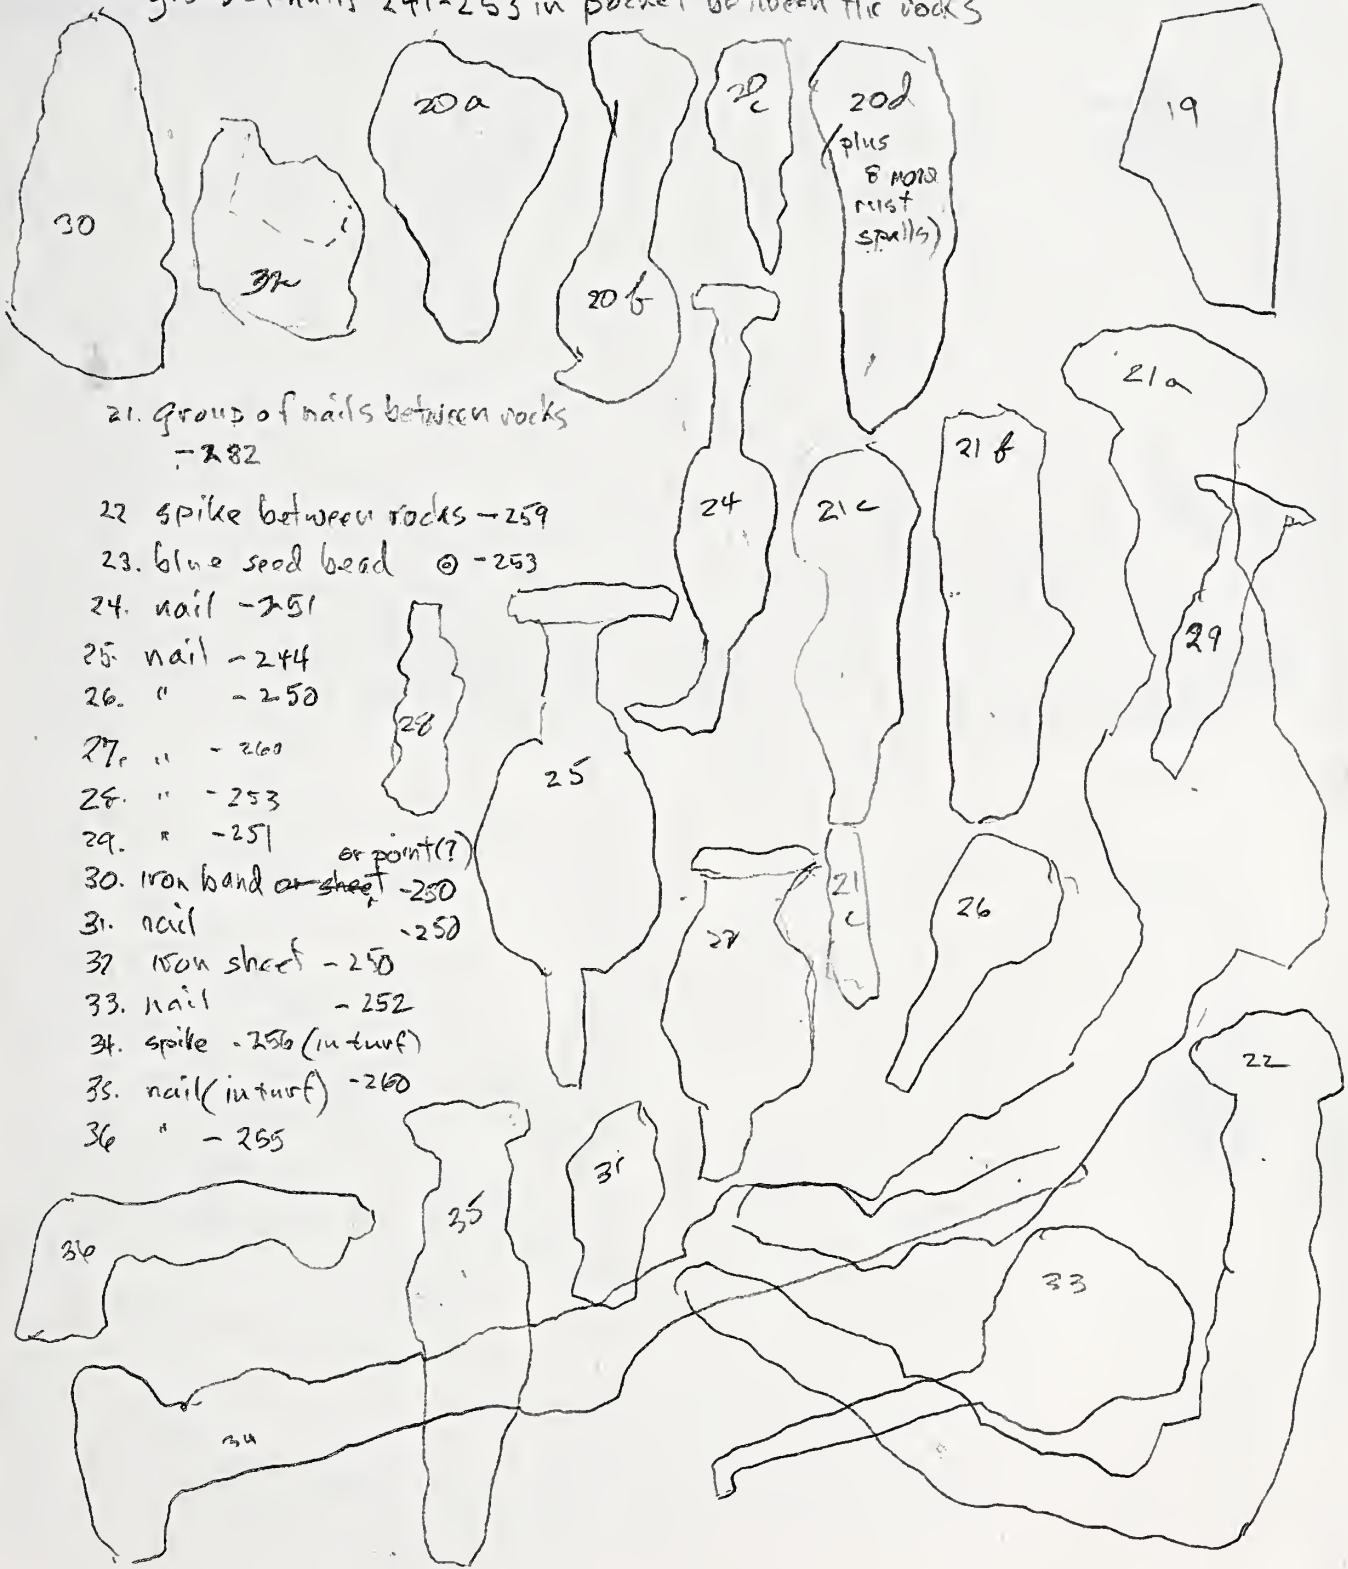 nails 241-253 in pocket between the rocks
30
32
20a
20b
20c
20d
(plus
8 more
rust
spalls)
19
21a
21. group of nails between rocks
-282
22 spike between rocks -259
23. blue seed bead ⊙ -253
24. nail -251
25. nail -244
26. " -250
27. " -260
28. " -253
29. " -251
or point(?)
30. iron band or sheet -250
31. nail -250
32 iron sheet -250
33. nail -252
34. spike -256 (in turf)
35. nail (in turf) -260
36 " -255
24
21c
21b
29
28
25
27
21
c
26
22
35
31
36
33
34